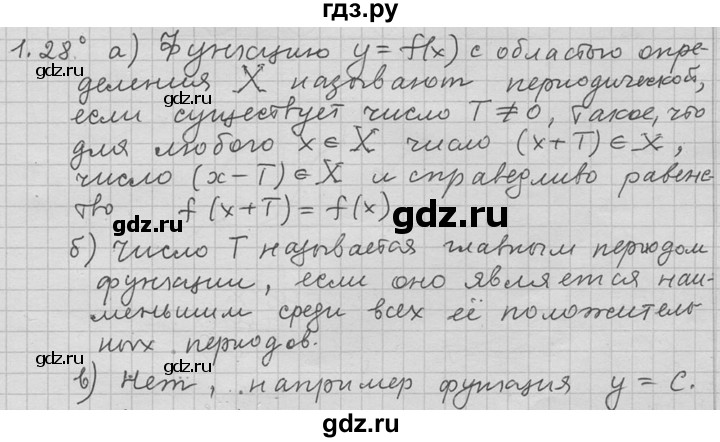 гдз.ру
1.28° а) Функцию y = f(x) с областью опре-
деления X называют периодической,
если существует число T ≠ 0, такое, что
для любого x ∈ X число (x+T) ∈ X,
число (x-T) ∈ X и справедливо равенс-
тво f(x+T) = f(x)
б) Число T называется главным периодом
функции, если оно является наи-
меньшим среди всех её положитель-
ных периодов.
в) Нет, например функция y = C.
gdz.ru
gdz.ru
gdz.ru
gdz.ru
gdz.ru
gdz.ru
gdz.ru
gdz.ru
gdz.ru
gdz.ru
gdz.ru